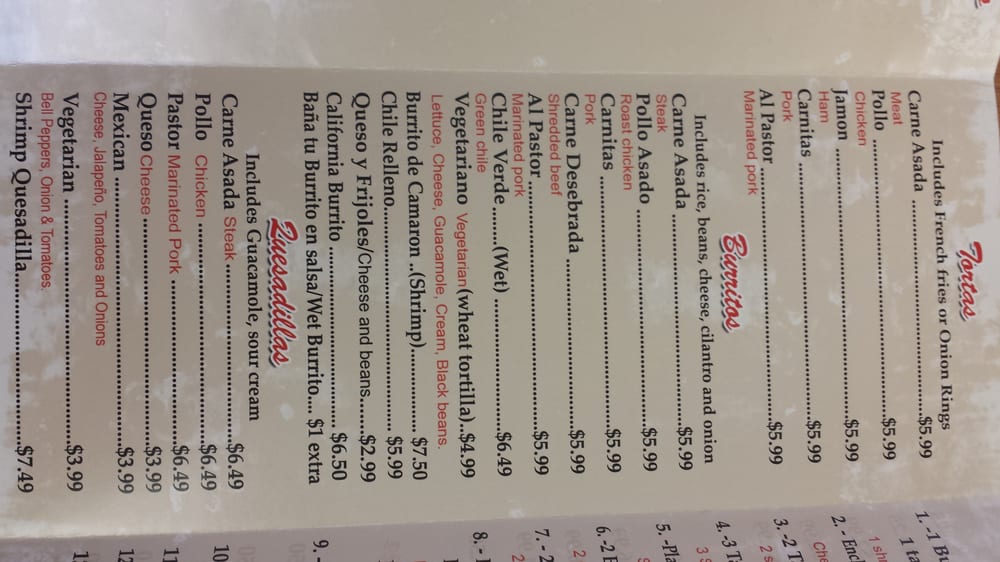 Tortas
Includes French fries or Onion Rings
Carne Asada ........$5.99
Meat
Pollo ........$5.99
Chicken
Jamon ........$5.99
Ham
Carnitas ........$5.99
Pork
Al Pastor ........$5.99
Marinated pork
Burritos
Includes rice, beans, cheese, cilantro and onion
Carne Asada ........$5.99
Steak
Pollo Asado ........$5.99
Roast chicken
Carnitas ........$5.99
Pork
Carne Desebrada ........$5.99
Shredded beef
Al Pastor........$5.99
Marinated pork
Chile Verde........(Wet) ........$6.49
Green chile
Vegetariano Vegetarian(wheat tortilla)..$4.99
Lettuce, Cheese, Guacamole, Cream, Black beans.
Burrito de Camaron ..(Shrimp)........ $7.50
Chile Relleno........ $5.99
Queso y Frijoles/Cheese and beans.......$2.99
California Burrito ........ $6.50
Baña tu Burrito en salsa/Wet Burrito.... $1 extra
Quesadillas
Includes Guacamole, sour cream
Carne Asada Steak ........$6.49
Pollo Chicken ........$6.49
Pastor Marinated Pork ........$6.49
Queso Cheese ........$3.99
Mexican ........$3.99
Cheese, Jalapeño, Tomatoes and Onions
Vegetarian ........$3.99
Bell Peppers, Onion & Tomatoes.
Shrimp Quesadilla........$7.49
1. -1 Bu
1 ta
1 shr
2. - Enc
Che
3. -2 T
2 s
4. -3 T
3 S
5. -Pla
6. -2 E
2
7. - 2
2
8. -
9. -
10
11
12